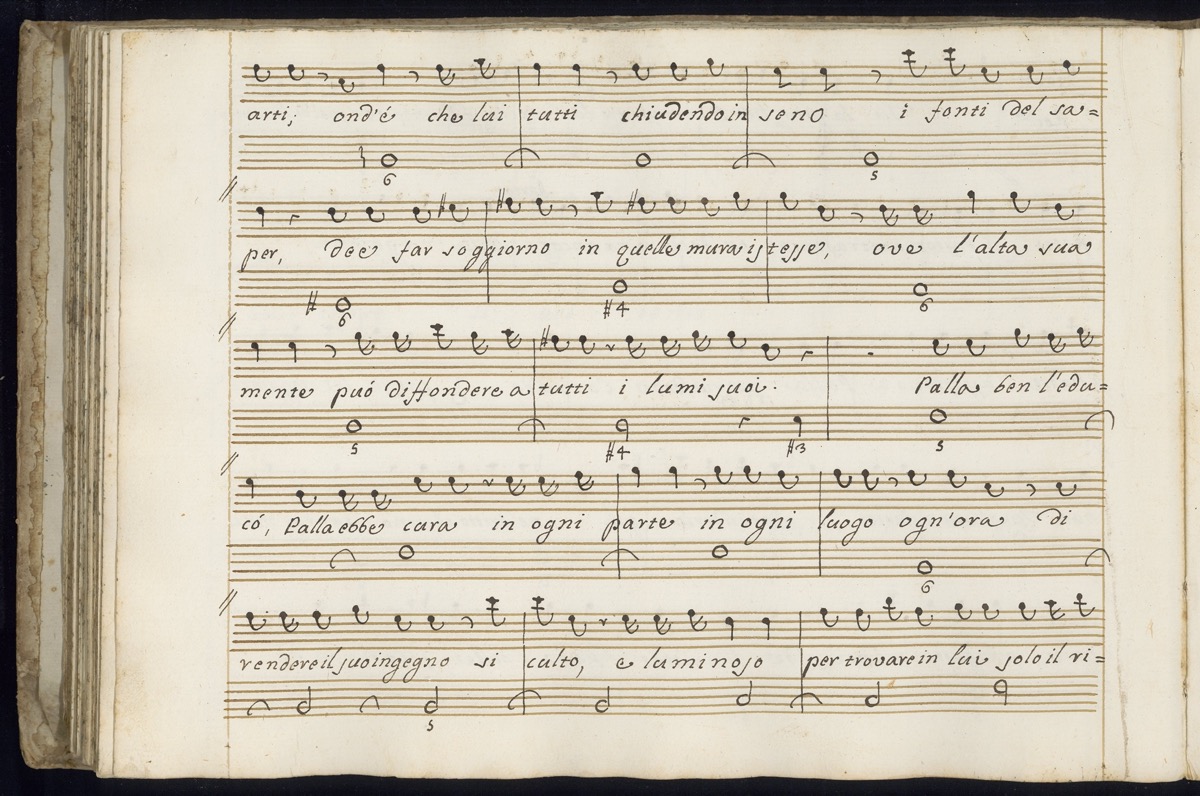 arti; ond'é che lui tutti chiudendo in seno i fonti del sa=
6 5
per, dee far soggiorno in quelle mura istesse, ove l'alta sua
6 #4 6
mente può diffondere a tutti i lumi suoi. Palla ben l'edu=
5 #4 #3 5
có, Palla ebbe cura in ogni parte in ogni luogo ogn'ora di
6
rendere il suo ingegno si culto, e luminoso per trovare in lui solo il ri=
5